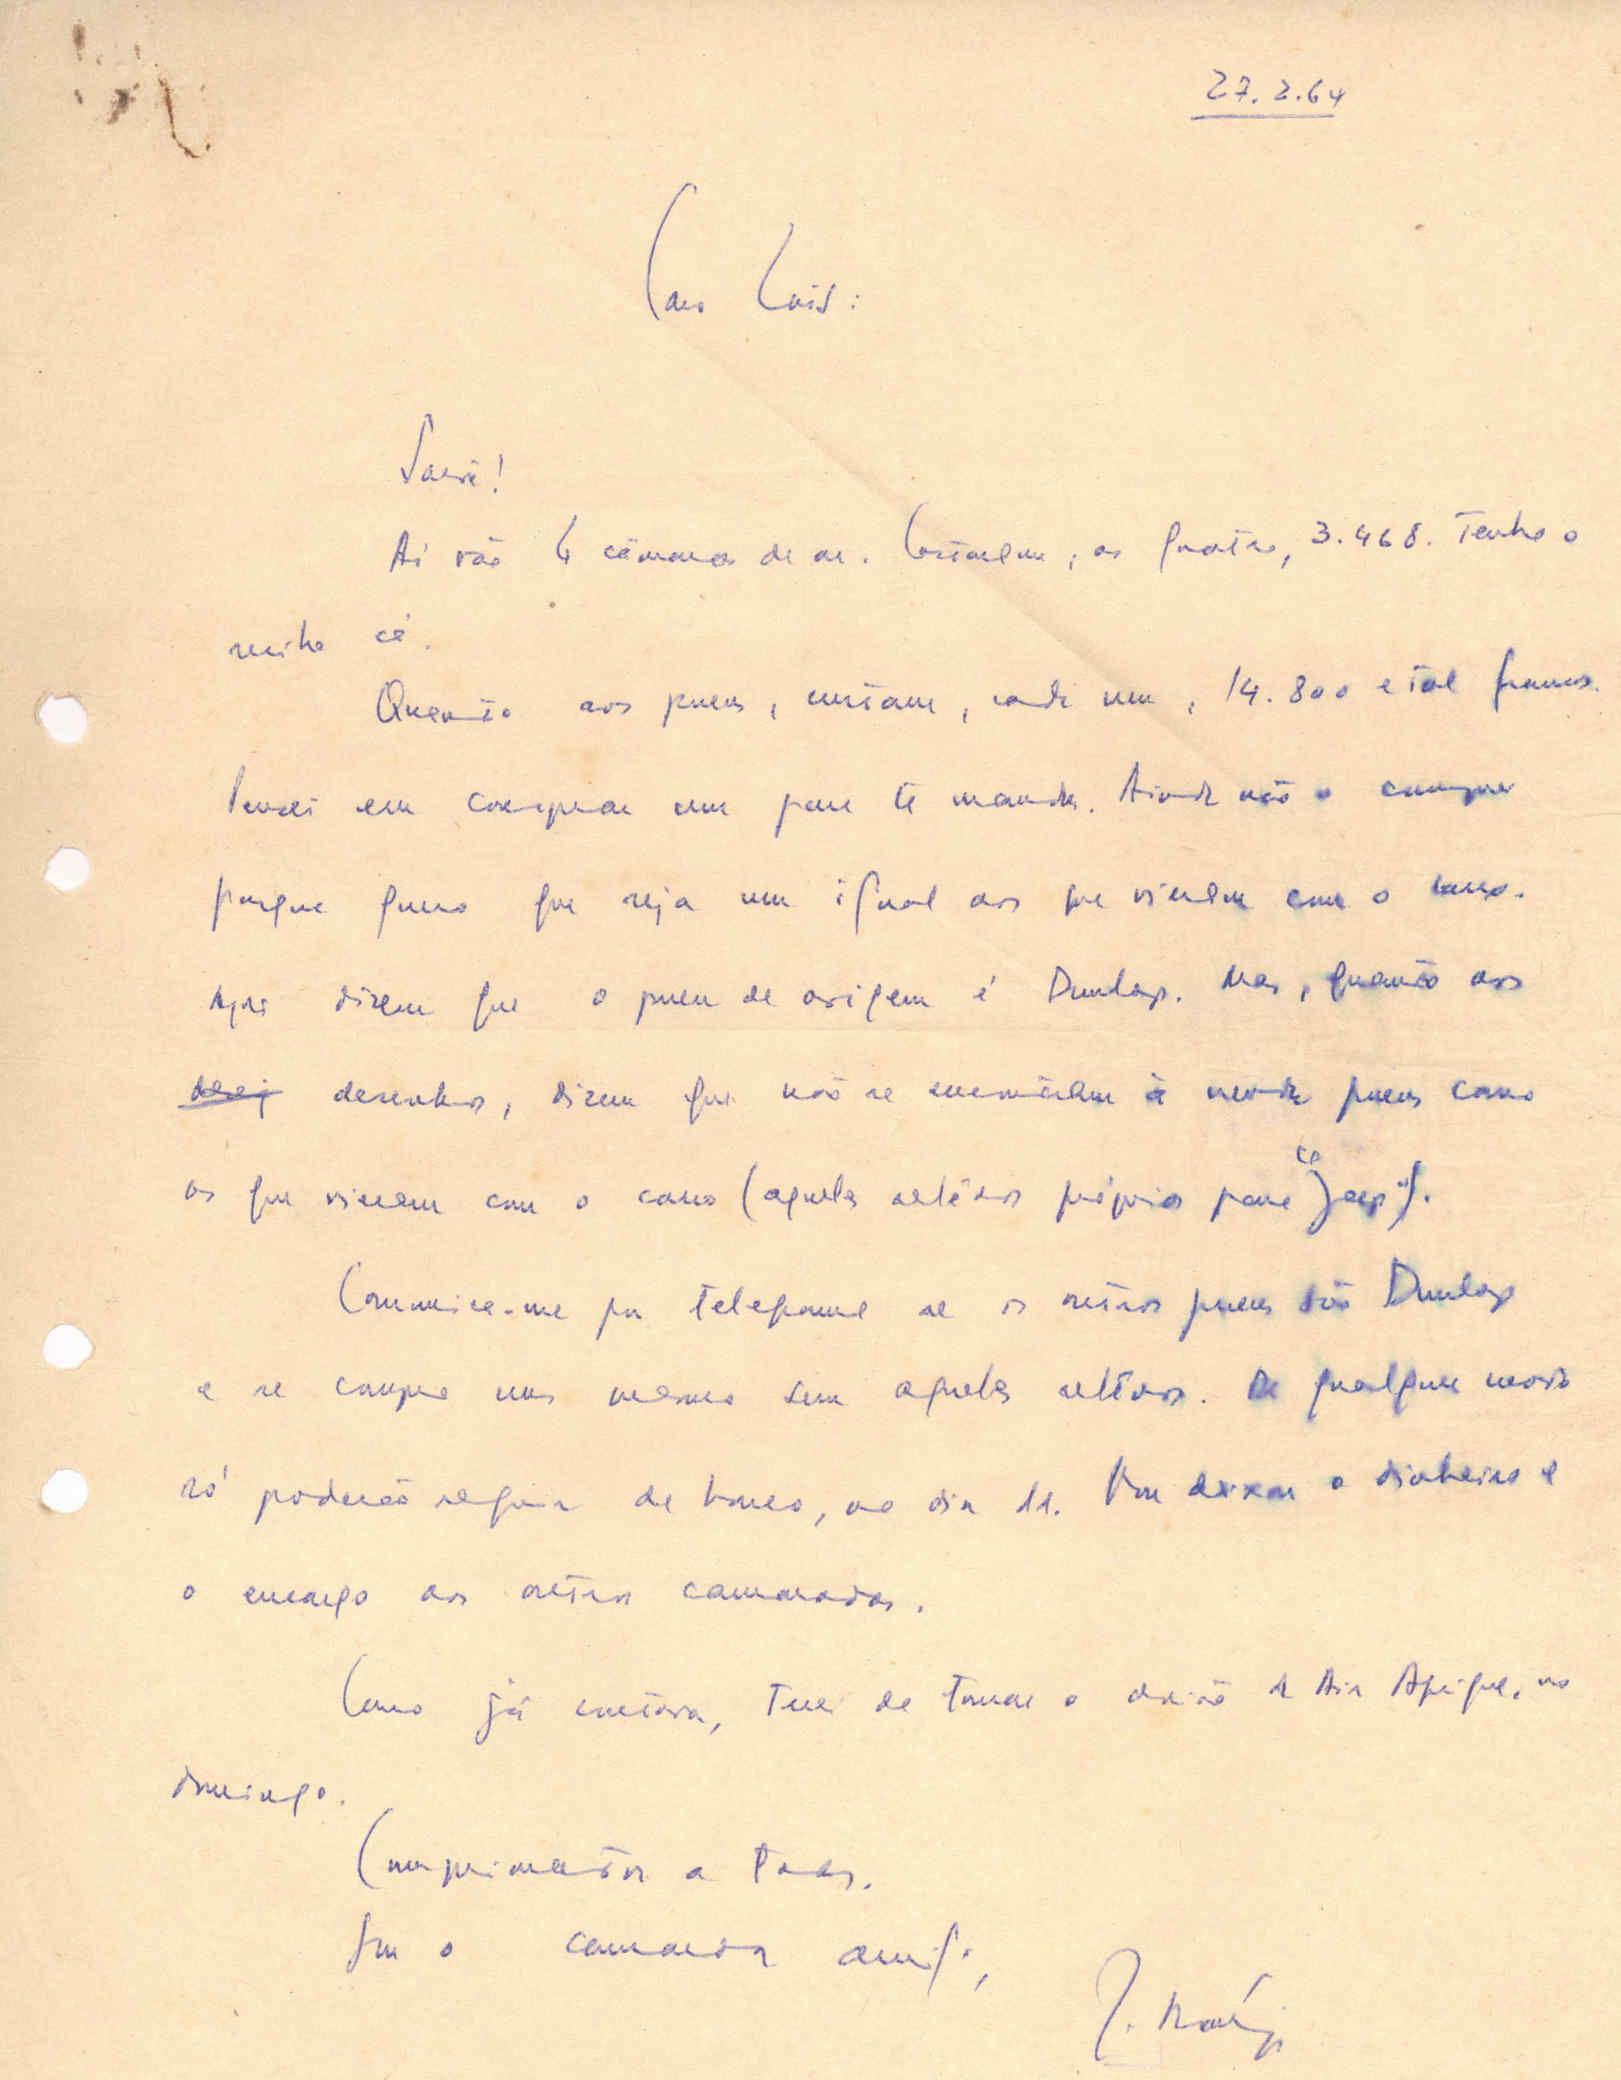 27.2.64
Caro Luís:
Saúde!
Aí vão 4 câmaras de ar. Custaram, as quatro, 3.468. Tenho o
recibo cá.
Quanto aos pneus, custam, cada um, 14.800 e tal francos.
Pensei em comprar um para te mandar. Ainda não o comprei
porque quero que seja um igual aos que vieram com o carro.
Aqui dizem que o pneu de origem é Dunlop. Mas, quanto aos
desej desenhos, dizem que não se encontram à venda pneus como
os que vieram com o carro (aqueles relêvos próprios para "Jeep").
Comunica-me por telegrama se os outros pneus são Dunlop
e se compro um mesmo sem aqueles relêvos. De qualquer modo
só poderão seguir de barco, no dia 11. Vou deixar o dinheiro e
o encargo aos outros camaradas.
Como já estava, terei de tomar o avião da Air Afrique, no
domingo.
Cumprimentos a todos.
Sou o camarada amigo,
J. Araújo